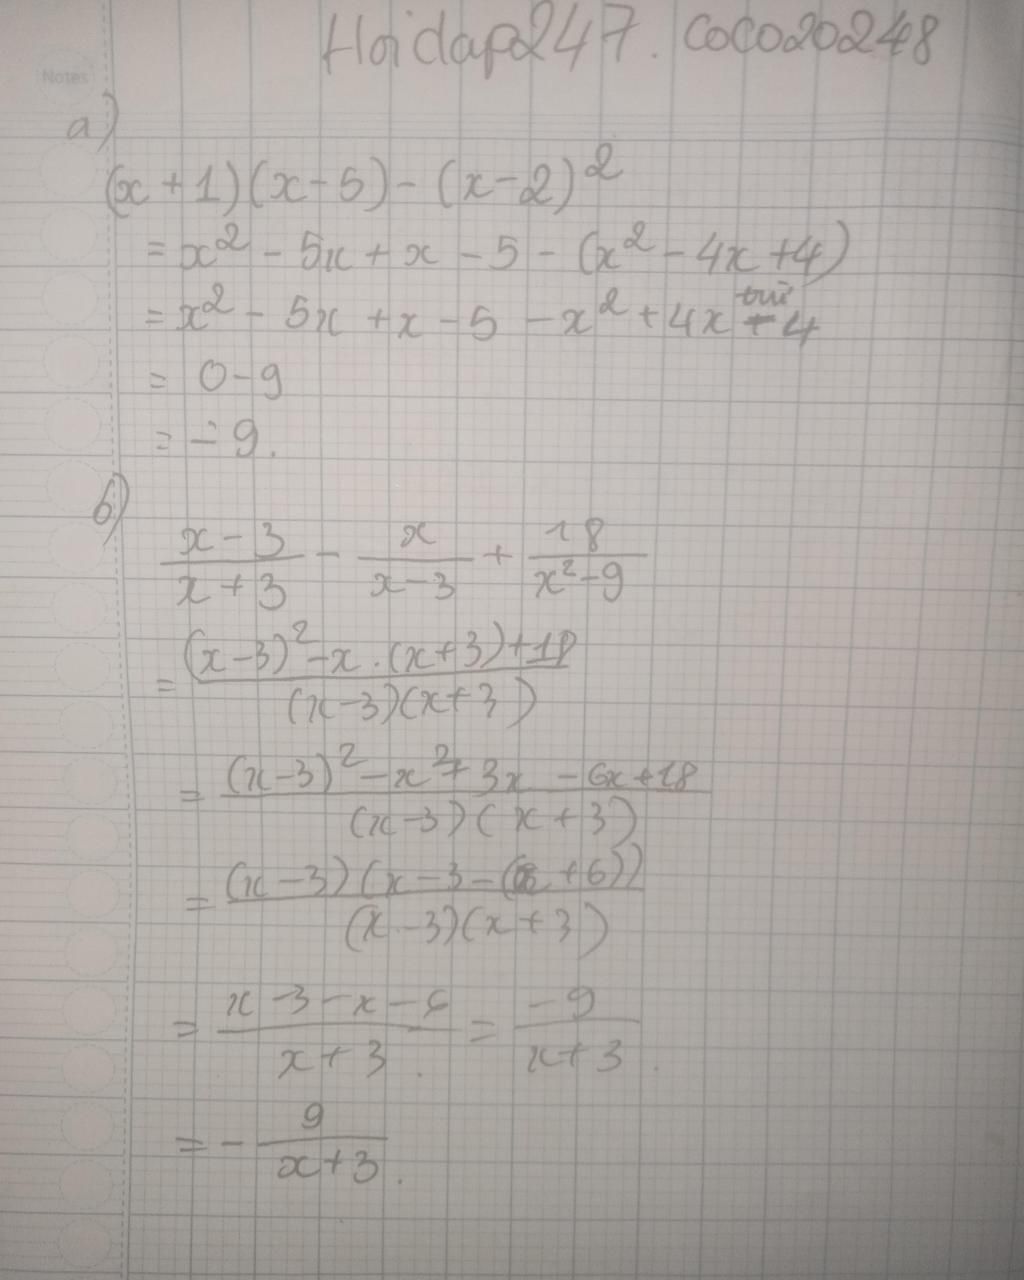 Hoidap247. coco20248
Notes
a)
(x + 1)(x - 5) - (x - 2)²
= x² - 5x + x - 5 - (x² - 4x + 4)
trừ
= x² - 5x + x - 5 - x² + 4x - 4
= 0 - 9
= - 9.
b)
(x - 3)/(x + 3) - x/(x - 3) + 18/(x² - 9)
= ((x - 3)² - x . (x + 3) + 18)/((x - 3)(x + 3))
= ((x - 3)² - x² + 3x - 6x + 18)/((x - 3)(x + 3))
= ((x - 3)(x - 3 - (x + 6)))/((x - 3)(x + 3))
= (x - 3 - x - 6)/(x + 3) = (- 9)/(x + 3).
= - 9/(x + 3).